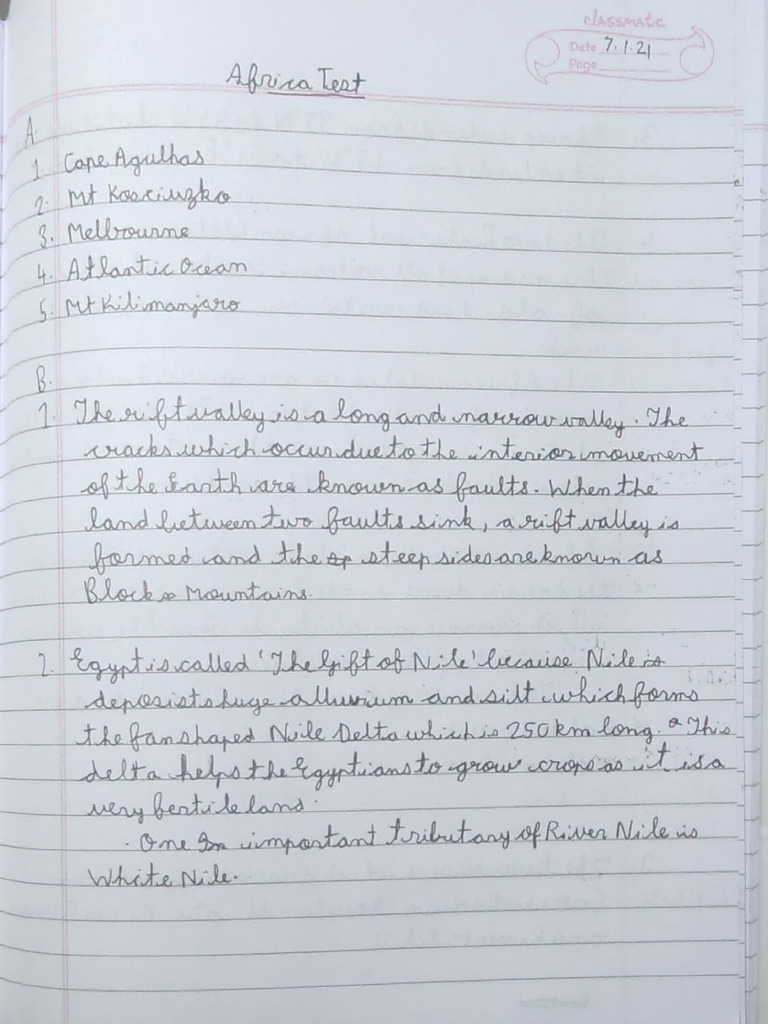 classmate
Date 7.1.21
Page
Africa Test
A.
1. Cape Agulhas
2. Mt Kosciuzko
3. Melbourne
4. Atlantic Ocean
5. Mt Kilimanjaro
B.
1. The rift valley is a long and narrow valley. The
cracks which occur due to the interior movement
of the Earth are known as faults. When the
land between two faults sink, a rift valley is
formed and the steep sides are known as
Block Mountains.
2. Egypt is called 'The Gift of Nile' because Nile is
deposists huge alluvium and silt which forms
the fan shaped Nile Delta which is 250 km long. This
delta helps the Egyptians to grow crops as it is a
very fertile land.
. One important tributary of River Nile is
White Nile.